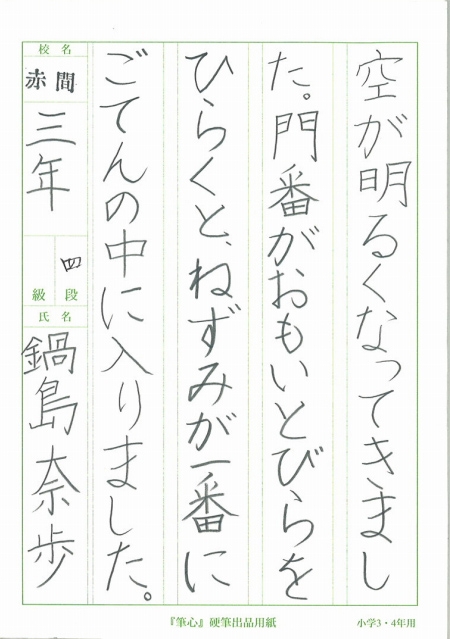 空が明るくなってきまし
た。門番がおもいとびらを
ひらくと、ねずみが一番に
ごてんの中に入りました。
校名
赤間
三年
四
級段
氏名
鍋島奈歩
『筆心』硬筆出品用紙
小学3・4年用